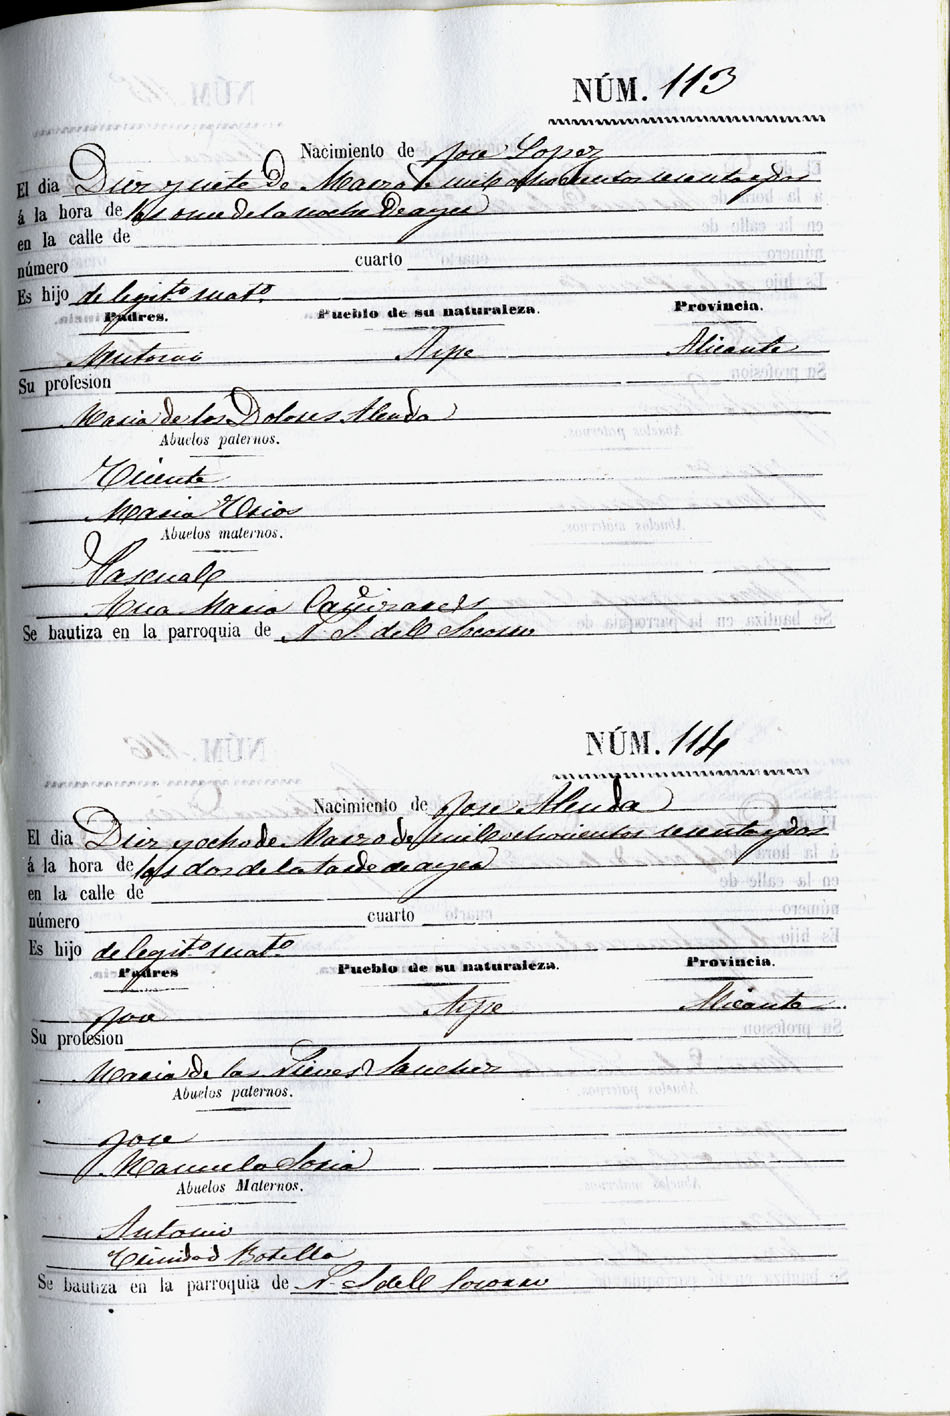 NÚM. 113
Nacimiento de Jose Lopez
El dia Diez y siete de Marzo de mil ochocientos sesenta y dos
á la hora de las once de la noche de ayer
en la calle de
número cuarto
Es hijo de legit.º mat.º
Padres. Pueblo de su naturaleza. Provincia.
Antonio Aspe Alicante
Su profesion
Maria de los Dolores Alenda
Abuelos paternos.
Vicente
Maria
Abuelos maternos.
Pascual
Ana Maria Cañizares
Se bautiza en la parroquia de N. S. del Socorro
NÚM. 114
Nacimiento de Jose Alenda
El dia Diez y ocho de Marzo de mil ochocientos sesenta y dos
á la hora de las dos de la tarde de ayer
en la calle de
número cuarto
Es hijo de legit.º mat.º
Padres Pueblo de su naturaleza. Provincia.
Jose Aspe Alicante
Su profesion
Maria de las Nieves Sanchez
Abuelos paternos.
Jose
Manuela Soria
Abuelos Maternos.
Antonio
Trinidad Botella
Se bautiza en la parroquia de N. S. del Socorro